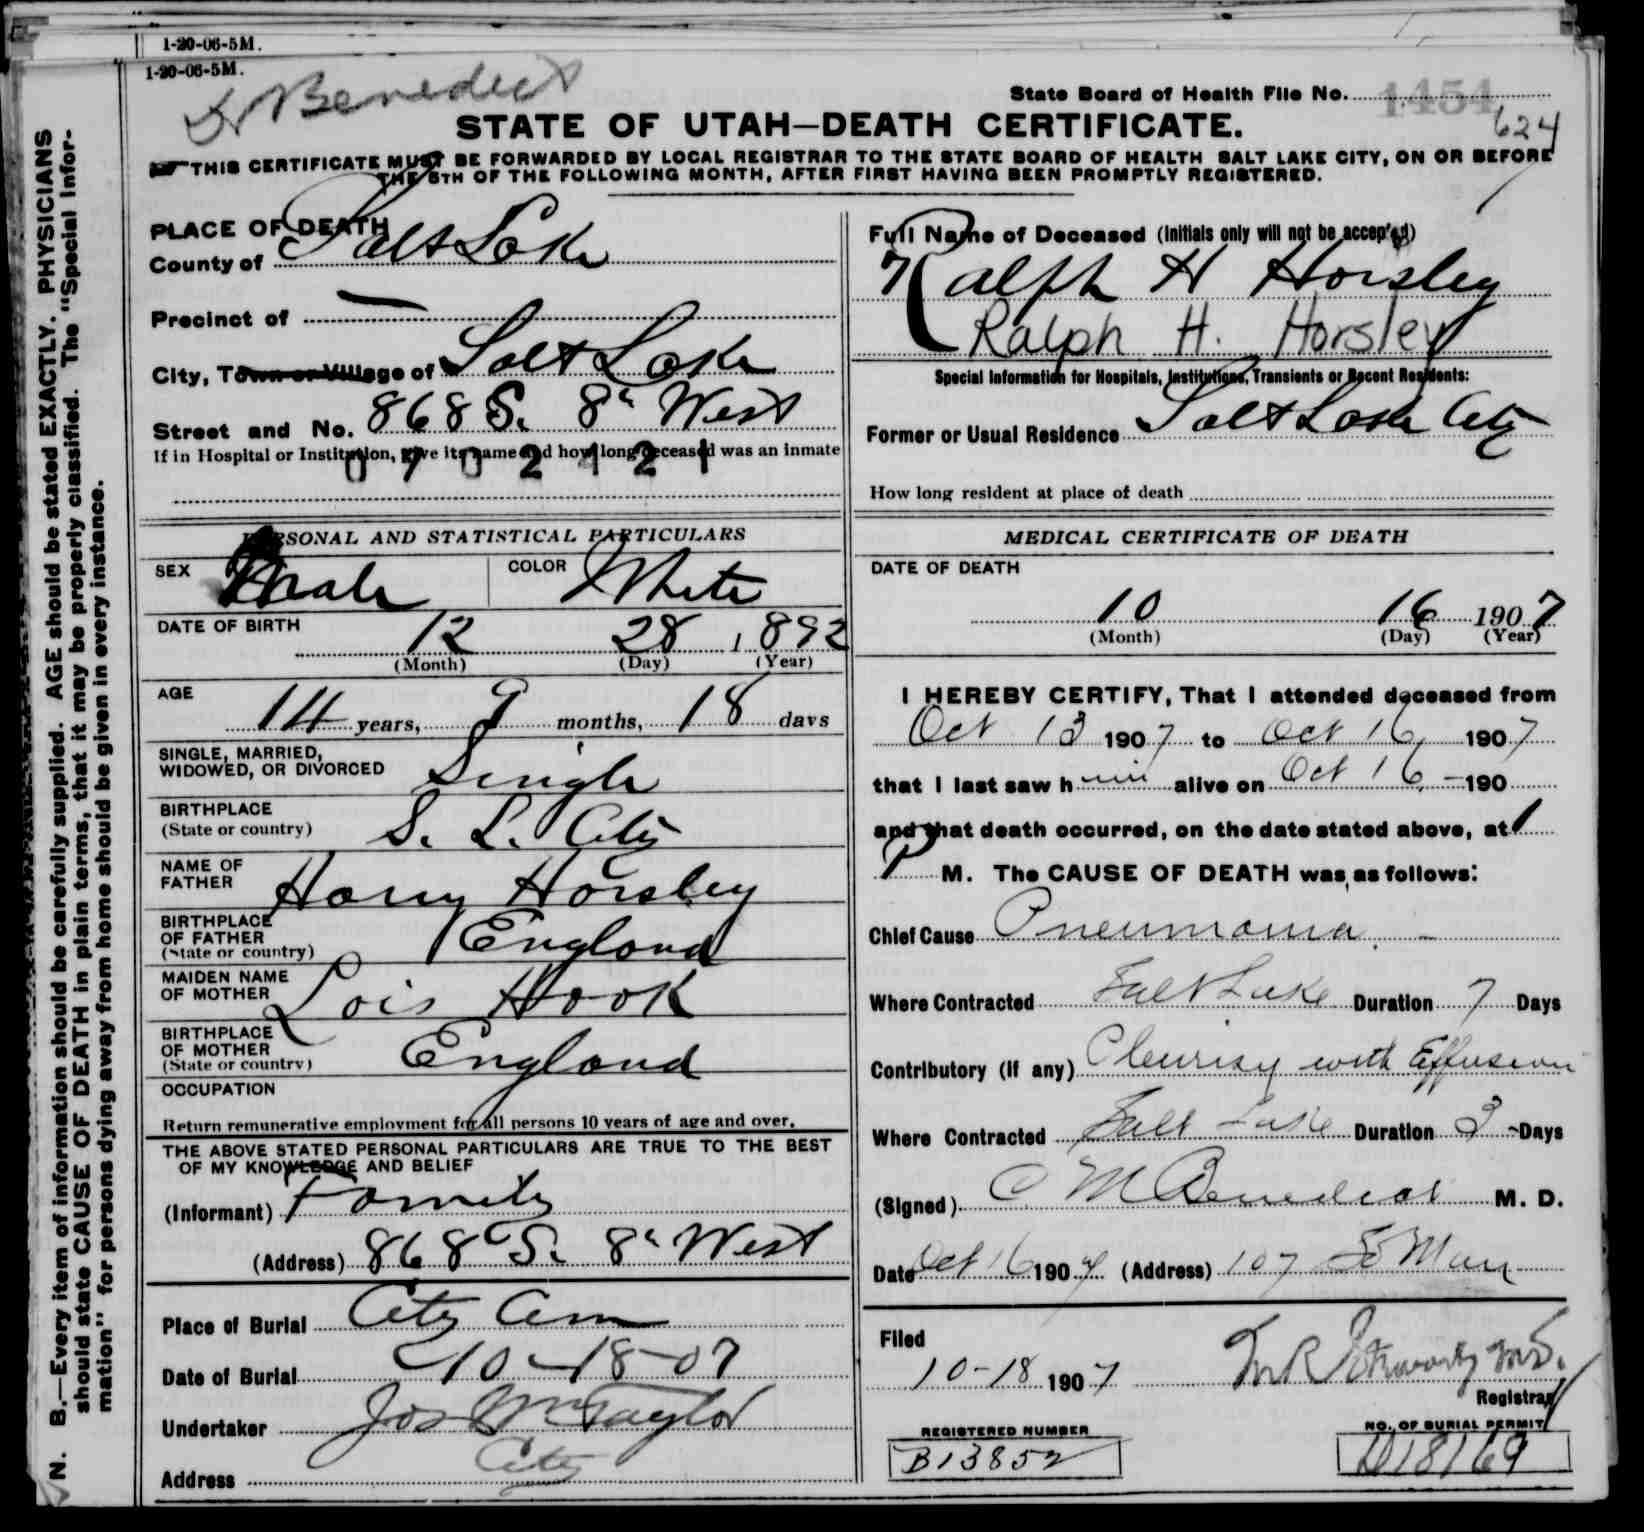 1-20-06-5M.
1-20-06-5M.
Dr Benedict
State Board of Health File No. 1454
624
STATE OF UTAH—DEATH CERTIFICATE.
THIS CERTIFICATE MUST BE FORWARDED BY LOCAL REGISTRAR TO THE STATE BOARD OF HEALTH SALT LAKE CITY, ON OR BEFORE
THE 5TH OF THE FOLLOWING MONTH, AFTER FIRST HAVING BEEN PROMPTLY REGISTERED.
PLACE OF DEATH
County of Salt Lake
Precinct of —
City, Town or Village of Salt Lake
Street and No. 868 S. 8" West
If in Hospital or Institution, give its name and how long deceased was an inmate
0702421
Full Name of Deceased (Initials only will not be accep'ed)
Ralph H Horsley
Ralph H. Horsley
Special Information for Hospitals, Institutions, Transients or Recent Residents:
Former or Usual Residence Salt Lake City
How long resident at place of death
PERSONAL AND STATISTICAL PARTICULARS
SEX Male COLOR White
DATE OF BIRTH 12 28 1892
(Month) (Day) (Year)
AGE 14 years, 9 months, 18 days
SINGLE, MARRIED,
WIDOWED, OR DIVORCED Single
BIRTHPLACE
(State or country) S. L. City
NAME OF
FATHER Harry Horsley
BIRTHPLACE
OF FATHER
(State or country) England
MAIDEN NAME
OF MOTHER Lois Hook
BIRTHPLACE
OF MOTHER
(State or country) England
OCCUPATION
Return remunerative employment for all persons 10 years of age and over.
THE ABOVE STATED PERSONAL PARTICULARS ARE TRUE TO THE BEST
OF MY KNOWLEDGE AND BELIEF
(Informant) Family
(Address) 868 S. 8" West
Place of Burial City Cem
Date of Burial 10-18-07
Undertaker Jos Wm Taylor
Address City
MEDICAL CERTIFICATE OF DEATH
DATE OF DEATH
10 16 1907
(Month) (Day) (Year)
I HEREBY CERTIFY, That I attended deceased from
Oct 13 1907 to Oct 16, 1907
that I last saw him alive on Oct 16 — 190
and that death occurred, on the date stated above, at 1
P M. The CAUSE OF DEATH was as follows:
Chief Cause Pneumonia. —
Where Contracted Salt Lake Duration 7 Days
Contributory (If any) Pleurisy with Effusion
Where Contracted Salt Lake Duration 3 Days
(Signed) C M Benedict M. D.
Date Oct 16 1907 (Address) 107 So Main
Filed
10-18 1907 M.D.
Registrar
REGISTERED NUMBER
B13852
NO. OF BURIAL PERMIT
D18169
N. B.—Every item of information should be carefully supplied. AGE should be stated EXACTLY. PHYSICIANS
should state CAUSE OF DEATH in plain terms, that it may be properly classified. The "Special Infor-
mation" for persons dying away from home should be given in every instance.